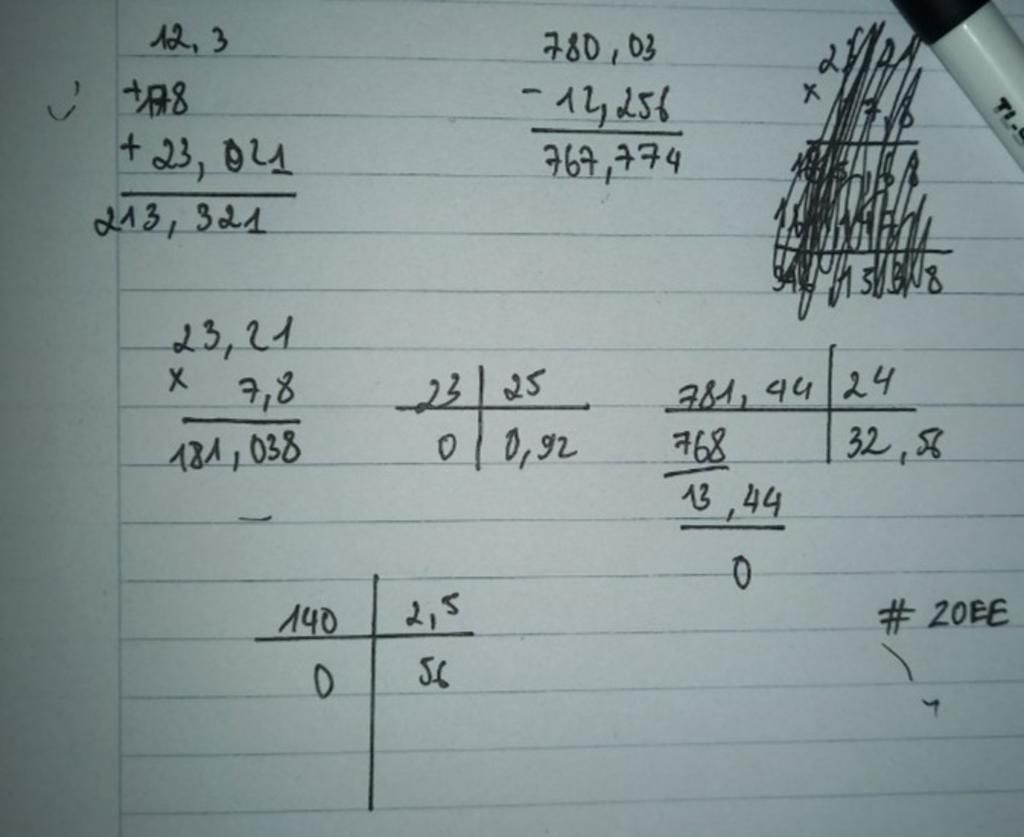 12,3
+178
+ 23,021
213,321
780,03
- 12,256
767,774
23,21
x 7,8
181,038
23 | 25
0 | 0,92
781,44 | 24
768 | 32,56
13,44
0
140 | 2,5
0 | 56
# 20EE